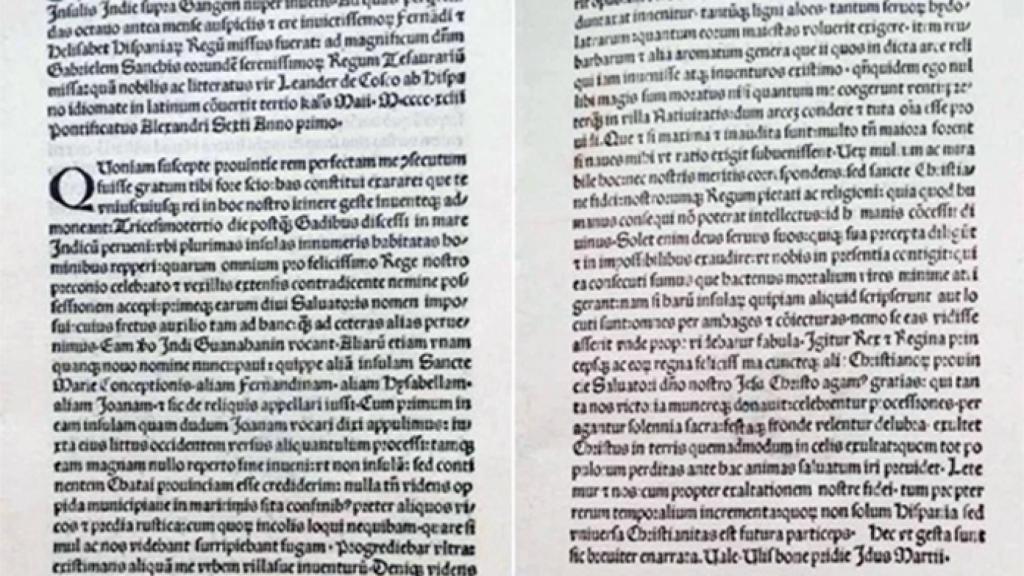 Insulis Indie supra Gangem nuper inuentis
das octauo antea mense auspiciis ⁊ ere inuictissimoꝝ Fernãdi ⁊
Helisabet Hispaniaꝝ Regũ missus fuerat: ad magnificum dñm
Gabrielem Sanchis eorundẽ serenissimoꝝ Regum Tesaurariũ
missa: quã nobilis ac litteratus vir Leander de Cosco ab Hispa
no idiomate in latinum cõuertit tertio kaľs Maii· M·cccc·xciii
Pontificatus Alexandri Sexti Anno primo·
QUoniam suscepte prouintie rem perfectam me ꝯsecutum
fuisse gratum tibi fore scio: has constitui exarare: que te
vniuscuiusqꝫ rei in hoc nostro itinere geste inuenteqꝫ ad⸗
moneant: Tricesimotertio die postqꝫ Gadibus discessi in mare
Indicũ perueni: vbi plurimas insulas innumeris habitatas ho⸗
minibus repperi: quarum omnium pro felicissimo Rege nostro
preconio celebrato ⁊ vexillis extensis contradicente nemine pos⸗
sessionem accepi: primeqꝫ earum diui Saluatoris nomen impo⸗
sui: cuius fretus auxilio tam ad hanc: qꝫ ad ceteras alias perue⸗
nimus· Eam ꝟo Indi Guanahanin vocant· Aliarũ etiam vnam
quanqꝫ nouo nomine nuncupaui: quippe aliã insulam Sancte
Marie Conceptionis· aliam Fernandinam· aliam Hysabellam·
aliam Joanam· ⁊ sic de reliquis appellari iussi· Cum primum in
eam insulam quam dudum Joanam vocari dixi appulimus: iu⸗
xta eius littus occidentem versus aliquantulum processi: tamqꝫ
eam magnam nullo reperto fine inueni: vt non insulã: sed conti
nentem Chatai prouinciam esse crediderim: nulla tñ videns op⸗
pida municipiaue in maritimis sita confinibꝰ preter aliquos vi⸗
cos ⁊ predia rustica: cum quoꝝ incolis loqui nequibam· quare si
mul ac nos videbant surripiebant fugam· Progrediebar vltra:
existimans aliquã me vrbem villasue inuenturũ· Deniqꝫ videns
duntaxat inuenitur· tantũqꝫ ligni aloes· tantum seruoꝝ hydo⸗
latrarum: quantum eorum maiestas voluerit exigere· item reu⸗
barbarum ⁊ alia aromatum genera que ii quos in dicta arce reli
qui iam inuenisse atqꝫ inuenturos existimo· qñquidem ego nul
libi magis sum moratus nisi quantum me coegerunt venti: pre⸗
terqꝫ in villa Natiuitatis: dum arcez condere ⁊ tuta oĩa esse pro
uidi· Que ⁊ si maxima ⁊ inaudita sunt: multo tñ maiora forent
si naues mihi vt ratio exigit subuenissent· Ueꝝ multum ac mira
bile hoc: nec nostris meritis correspondens: sed sancte Christia⸗
ne fidei: nostrorumqꝫ Regum pietati ac religioni: quia quod hu
manus consequi nõ poterat intellectus: id humanis cõcessit di
uinus· Solet enim deus seruos suos: quiqꝫ sua precepta diligũt
⁊ in impossibilibus exaudire: vt nobis in presentia contigit: qui
ea consecuti sumus que hactenus mortalium vires minime atti
gerant: nam si harũ insulaꝝ quipiam aliquid scripserunt aut lo
cuti sunt: omnes per ambages ⁊ cõiecturas· nemo se eas vidisse
asserit vnde prope videbatur fabula· Igitur Rex ⁊ Regina prin
cepsqꝫ ac eoꝝ regna felicissima cuncteqꝫ alie Christianoꝝ prouin
cie Saluatori dño nostro Jesu Christo agamꝰ gratias: qui tan
ta nos victoria munereqꝫ donauit: celebrentur processiones· per
agantur solennia sacra: festaqꝫ fronde velentur delubra· exultet
Christus in terris quemadmodum in celis exultat: quom tot po
pulorum perditas ante hac animas saluatum iri preuidet· Lete
mur ⁊ nos: cum propter exaltationem nostre fidei· tum propter
rerum temporalium incrementa: quoꝝ non solum Hispania sed
vniuersa Christianitas est futura particeps· Hec vt gesta sunt
sic breuiter enarrata· Uale· Ulisbone pridie Idus Martii·